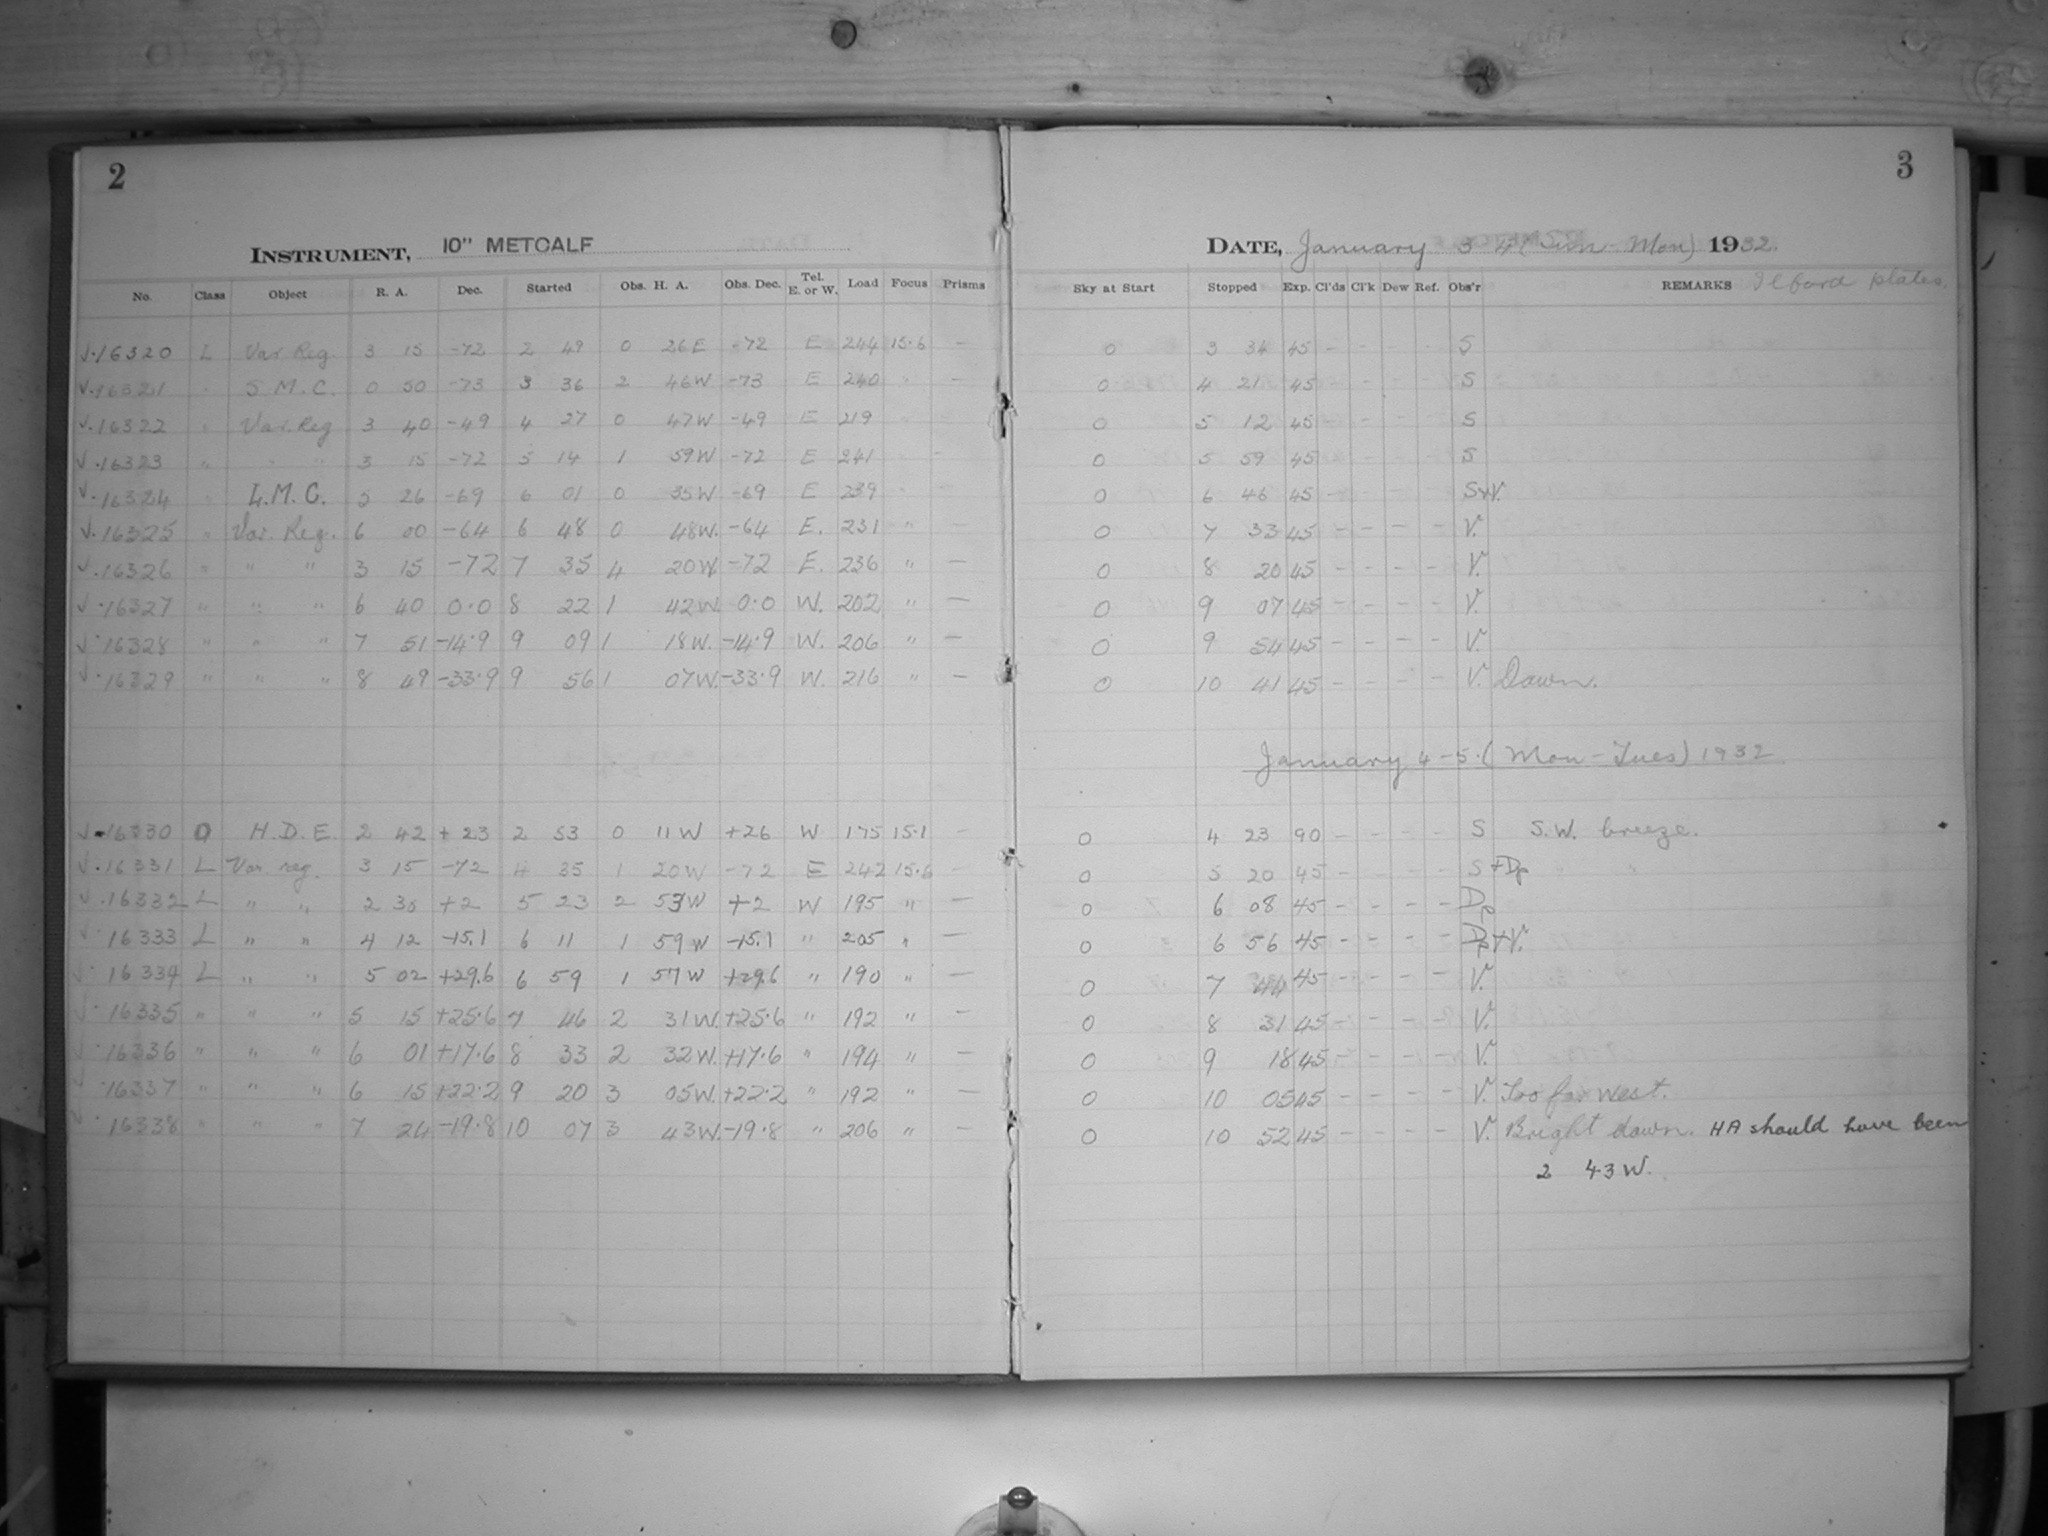 2
INSTRUMENT, 10" METCALF
No. Class Object R. A. Dec. Started Obs. H. A. Obs. Dec. Tel. E. or W. Load Focus Prisms
√.16320 L Var Reg. 3 15 -72 2 49 0 26E -72 E 244 15.6 —
√.16321 " S.M.C. 0 50 -73 3 36 2 46W -73 E 240 " —
√.16322 " Var. Reg 3 40 -49 4 27 0 47W -49 E 219 " —
√.16323 " " " 3 15 -72 5 14 1 59W -72 E 241 " —
√.16324 " L.M.C. 5 26 -69 6 01 0 35W -69 E 239 " —
√.16325 " Var. Reg. 6 00 -64 6 48 0 48W. -64 E. 231 " —
√.16326 " " " 3 15 -72 7 35 4 20W -72 E. 236 " —
√.16327 " " " 6 40 0.0 8 22 1 42W. 0.0 W. 202 " —
√.16328 " " " 7 51 -14.9 9 09 1 18W. -14.9 W. 206 " —
√.16329 " " " 8 49 -33.9 9 56 1 07W. -33.9 W. 216 " —
√.16330 Q H.D.E. 2 42 +23 2 53 0 11W +26 W 175 15.1 —
√.16331 L Var. reg. 3 15 -72 4 35 1 20W -72 E 242 15.6 —
√.16332 L " " 2 30 +2 5 23 2 53W +2 W 195 " —
√.16333 L " " 4 12 -15.1 6 11 1 59W -15.1 " 205 " —
√.16334 L " " 5 02 +29.6 6 59 1 57W +29.6 " 190 " —
√.16335 " " " 5 15 +25.6 7 46 2 31W. +25.6 " 192 " —
√.16336 " " " 6 01 +17.6 8 33 2 32W. +17.6 " 194 " —
√.16337 " " " 6 15 +22.2 9 20 3 05W. +22.2 " 192 " —
√.16338 " " " 7 24 -19.8 10 07 3 43W. -19.8 " 206 " —
3
DATE, January 3-4 (Sun-Mon) 1932.
Sky at Start Stopped Exp. Cl'ds Cl'k Dew Ref. Obs'r REMARKS Ilford plates.
0 3 34 45 - - - - S
0 4 21 45 - - - - S
0 5 12 45 - - - - S
0 5 59 45 - - - - S
0 6 46 45 - - - - S+V.
0 7 33 45 - - - - V.
0 8 20 45 - - - - V.
0 9 07 45 - - - - V.
0 9 54 45 - - - - V.
0 10 41 45 - - - - V. Dawn.
January 4-5. (Mon-Tues) 1932
0 4 23 90 - - - - S S.W. breeze.
0 5 20 45 - - - - S+Dp " "
0 6 08 45 - - - - Dp
0 6 56 45 - - - - Dp+V.
0 7 44 45 - - - - V.
0 8 31 45 - - - - V.
0 9 18 45 - - - - V.
0 10 05 45 - - - - V. Too far west.
0 10 52 45 - - - - V. Bright dawn. HA should have been
2 43W.